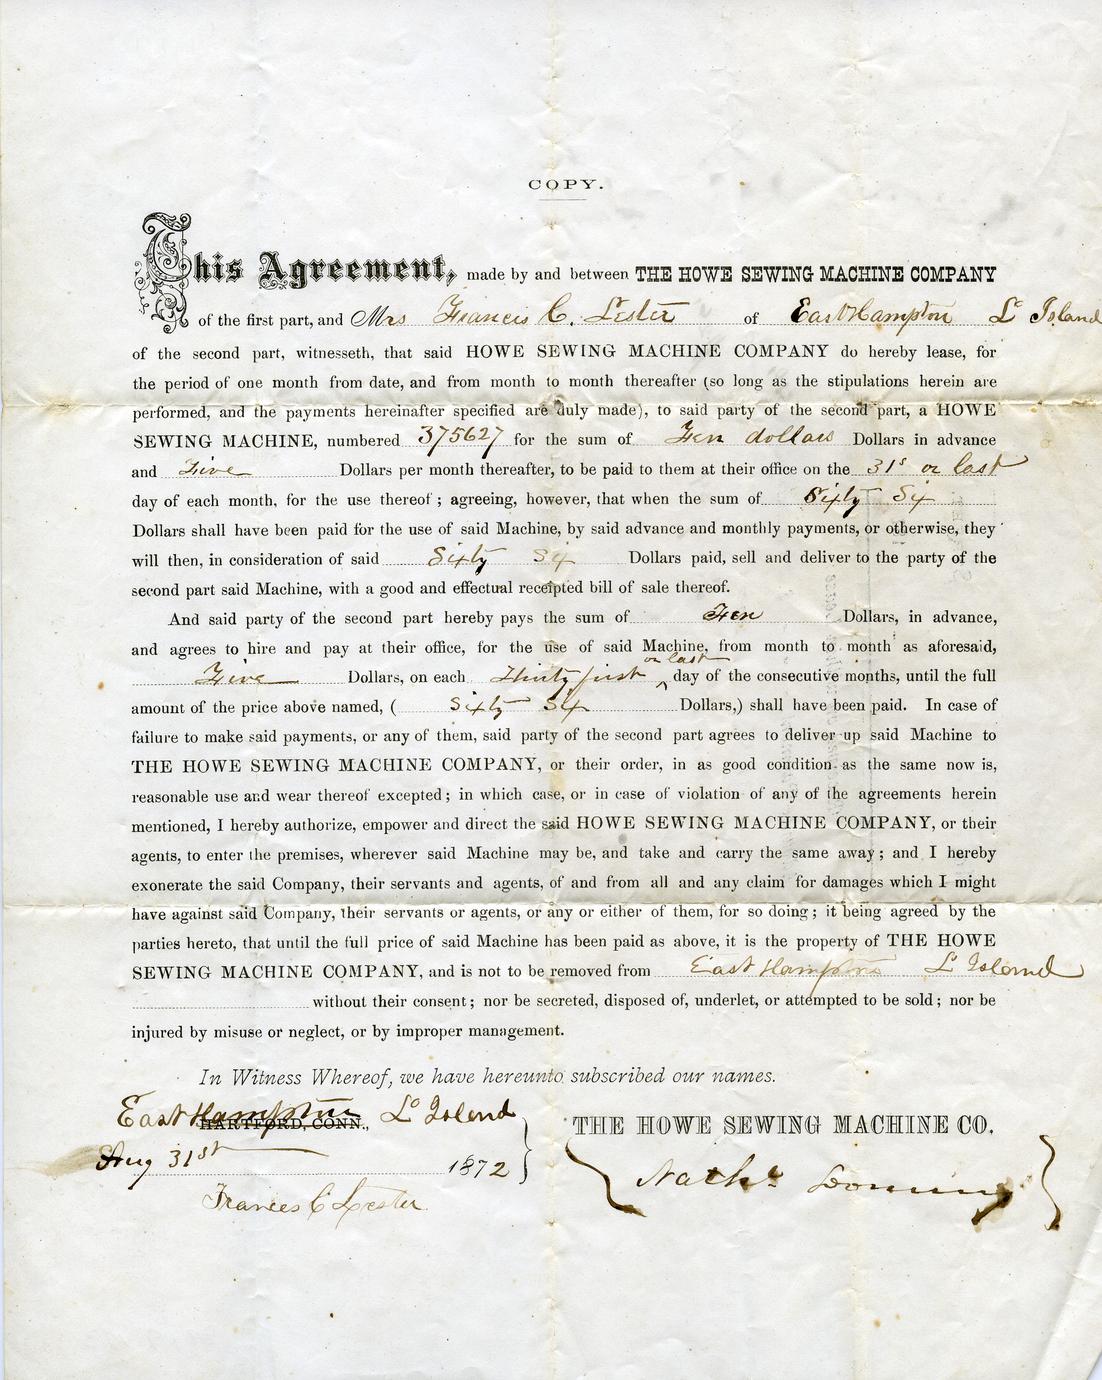 COPY.
This Agreement, made by and between THE HOWE SEWING MACHINE COMPANY
of the first part, and Mrs Francis C. Lester of East Hampton Lo Island
of the second part, witnesseth, that said HOWE SEWING MACHINE COMPANY do hereby lease, for
the period of one month from date, and from month to month thereafter (so long as the stipulations herein are
performed, and the payments hereinafter specified are duly made), to said party of the second part, a HOWE
SEWING MACHINE, numbered 375627 for the sum of Ten dollars Dollars in advance
and Five Dollars per month thereafter, to be paid to them at their office on the 31s or last
day of each month, for the use thereof; agreeing, however, that when the sum of Sixty Six
Dollars shall have been paid for the use of said Machine, by said advance and monthly payments, or otherwise, they
will then, in consideration of said Sixty Six Dollars paid, sell and deliver to the party of the
second part said Machine, with a good and effectual receipted bill of sale thereof.
And said party of the second part hereby pays the sum of Ten Dollars, in advance,
and agrees to hire and pay at their office, for the use of said Machine, from month to month as aforesaid,
or last
Five Dollars, on each Thirty first day of the consecutive months, until the full
amount of the price above named, ( Sixty Six Dollars,) shall have been paid. In case of
failure to make said payments, or any of them, said party of the second part agrees to deliver up said Machine to
THE HOWE SEWING MACHINE COMPANY, or their order, in as good condition as the same now is,
reasonable use and wear thereof excepted; in which case, or in case of violation of any of the agreements herein
mentioned, I hereby authorize, empower and direct the said HOWE SEWING MACHINE COMPANY, or their
agents, to enter the premises, wherever said Machine may be, and take and carry the same away; and I hereby
exonerate the said Company, their servants and agents, of and from all and any claim for damages which I might
have against said Company, their servants or agents, or any or either of them, for so doing; it being agreed by the
parties hereto, that until the full price of said Machine has been paid as above, it is the property of THE HOWE
SEWING MACHINE COMPANY, and is not to be removed from East Hampton L Island
without their consent; nor be secreted, disposed of, underlet, or attempted to be sold; nor be
injured by misuse or neglect, or by improper management.
In Witness Whereof, we have hereunto subscribed our names.
East Hampton Lo Island
HARTFORD, CONN.,
THE HOWE SEWING MACHINE CO.
Aug 31st 1872
Nathl Dominy
Frances C Lester